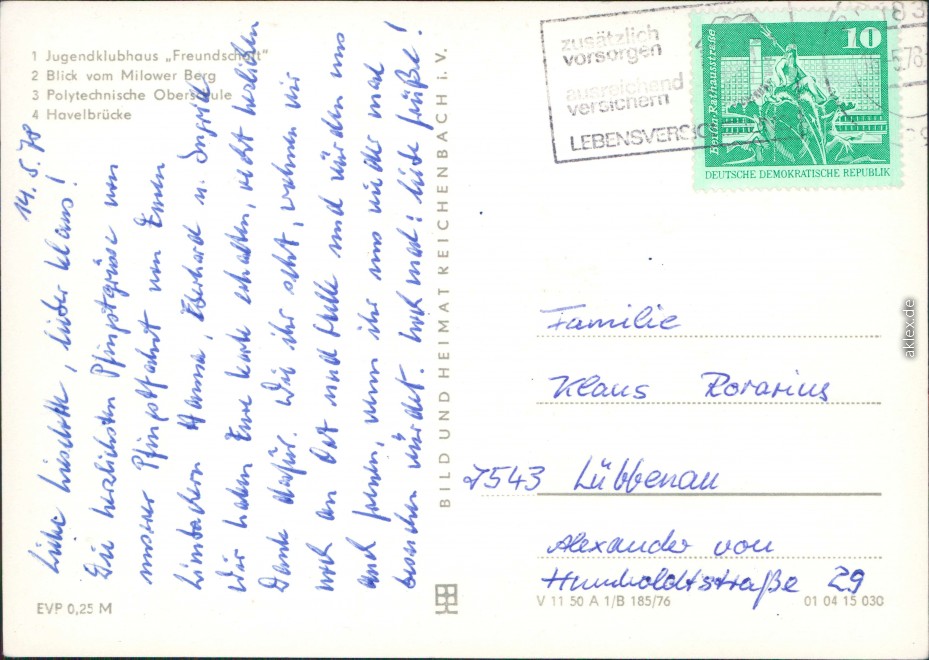 1 Jugendklubhaus „Freundschaft"
2 Blick vom Milower Berg
3 Polytechnische Oberschule
4 Havelbrücke
14. 5. 78
Liebe Lieselotte, lieber Klaus!
Die herzlichsten Pfingstgrüsse von
unserer Pfingstfahrt von Euren
Limbachern Hanna, Eberhard u. Ingrid
Wir haben Eure Karte erhalten, recht herzlichen
Dank dafür. Wie ihr seht, wohnen wir
noch an Ort und Stelle und würden uns
auch freuen, wenn ihr uns wieder mal
besuchen würdet. Noch mal: liebe Grüße!
EVP 0,25 M
BILD UND HEIMAT REICHENBACH i. V.
zusätzlich
vorsorgen
ausreichend
versichern
LEBENSVERSIC
10
Berlin-Rathausstraße
DEUTSCHE DEMOKRATISCHE REPUBLIK
Familie
Klaus Rorarius
7543 Lübbenau
Alexander von
Humboldtstraße 29
V 11 50 A 1/B 185/76
01 04 15 030
aklex.de